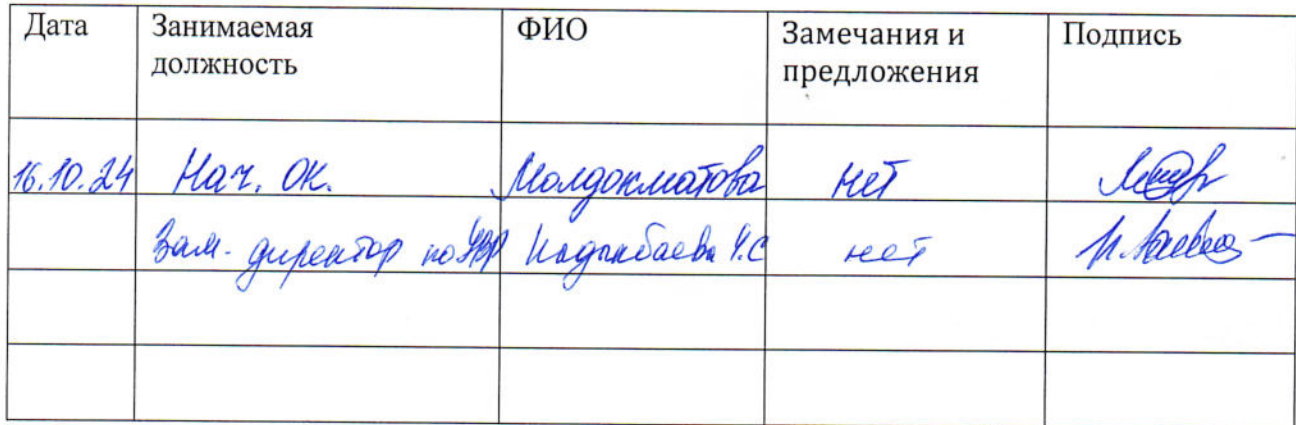 Дата Занимаемая должность ФИО Замечания и предложения Подпись
16.10.24 Нач. ОК. Молдокматова нет
Зам. директор по УВР Кадыкбаева Ч.С нет